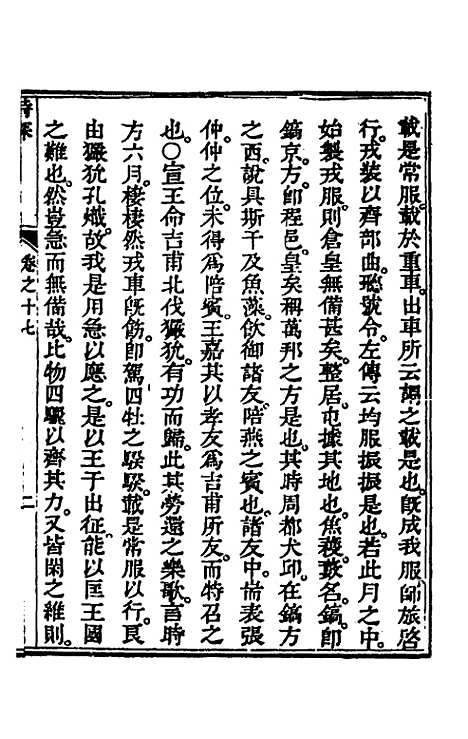 載是常服。載於重車。出車所云謂之載是也。旣成我服。師旅啓
行。戎裝以齊部曲。聽號令。左傳云均服振振是也。若此月之中。
始製戎服。則倉皇無備甚矣。整居。屯據其地也。焦穫。藪名。鎬。即
鎬京。方。即程邑。皇矣稱萬邦之方是也。其時周都犬邱。在鎬方
之西。說具斯干及魚藻。飲御諸友。陪燕之賓也。諸友中。惟表張
仲。仲之位未得爲陪賓。王嘉其以孝友爲吉甫所友而特召之
也。○宣王命吉甫北伐玁狁。有功而歸。此其勞還之樂歌。言時
方六月。棲棲然戎車旣飭。卽駕四牡之騤騤。載是常服以行。良
由玁狁孔熾。故我是用急以應之。是以王于出征。能以匡王國
之難也。然豈急而無備哉。比物四驪以齊其力。又皆閑之維則。
詩
卷之十七
二